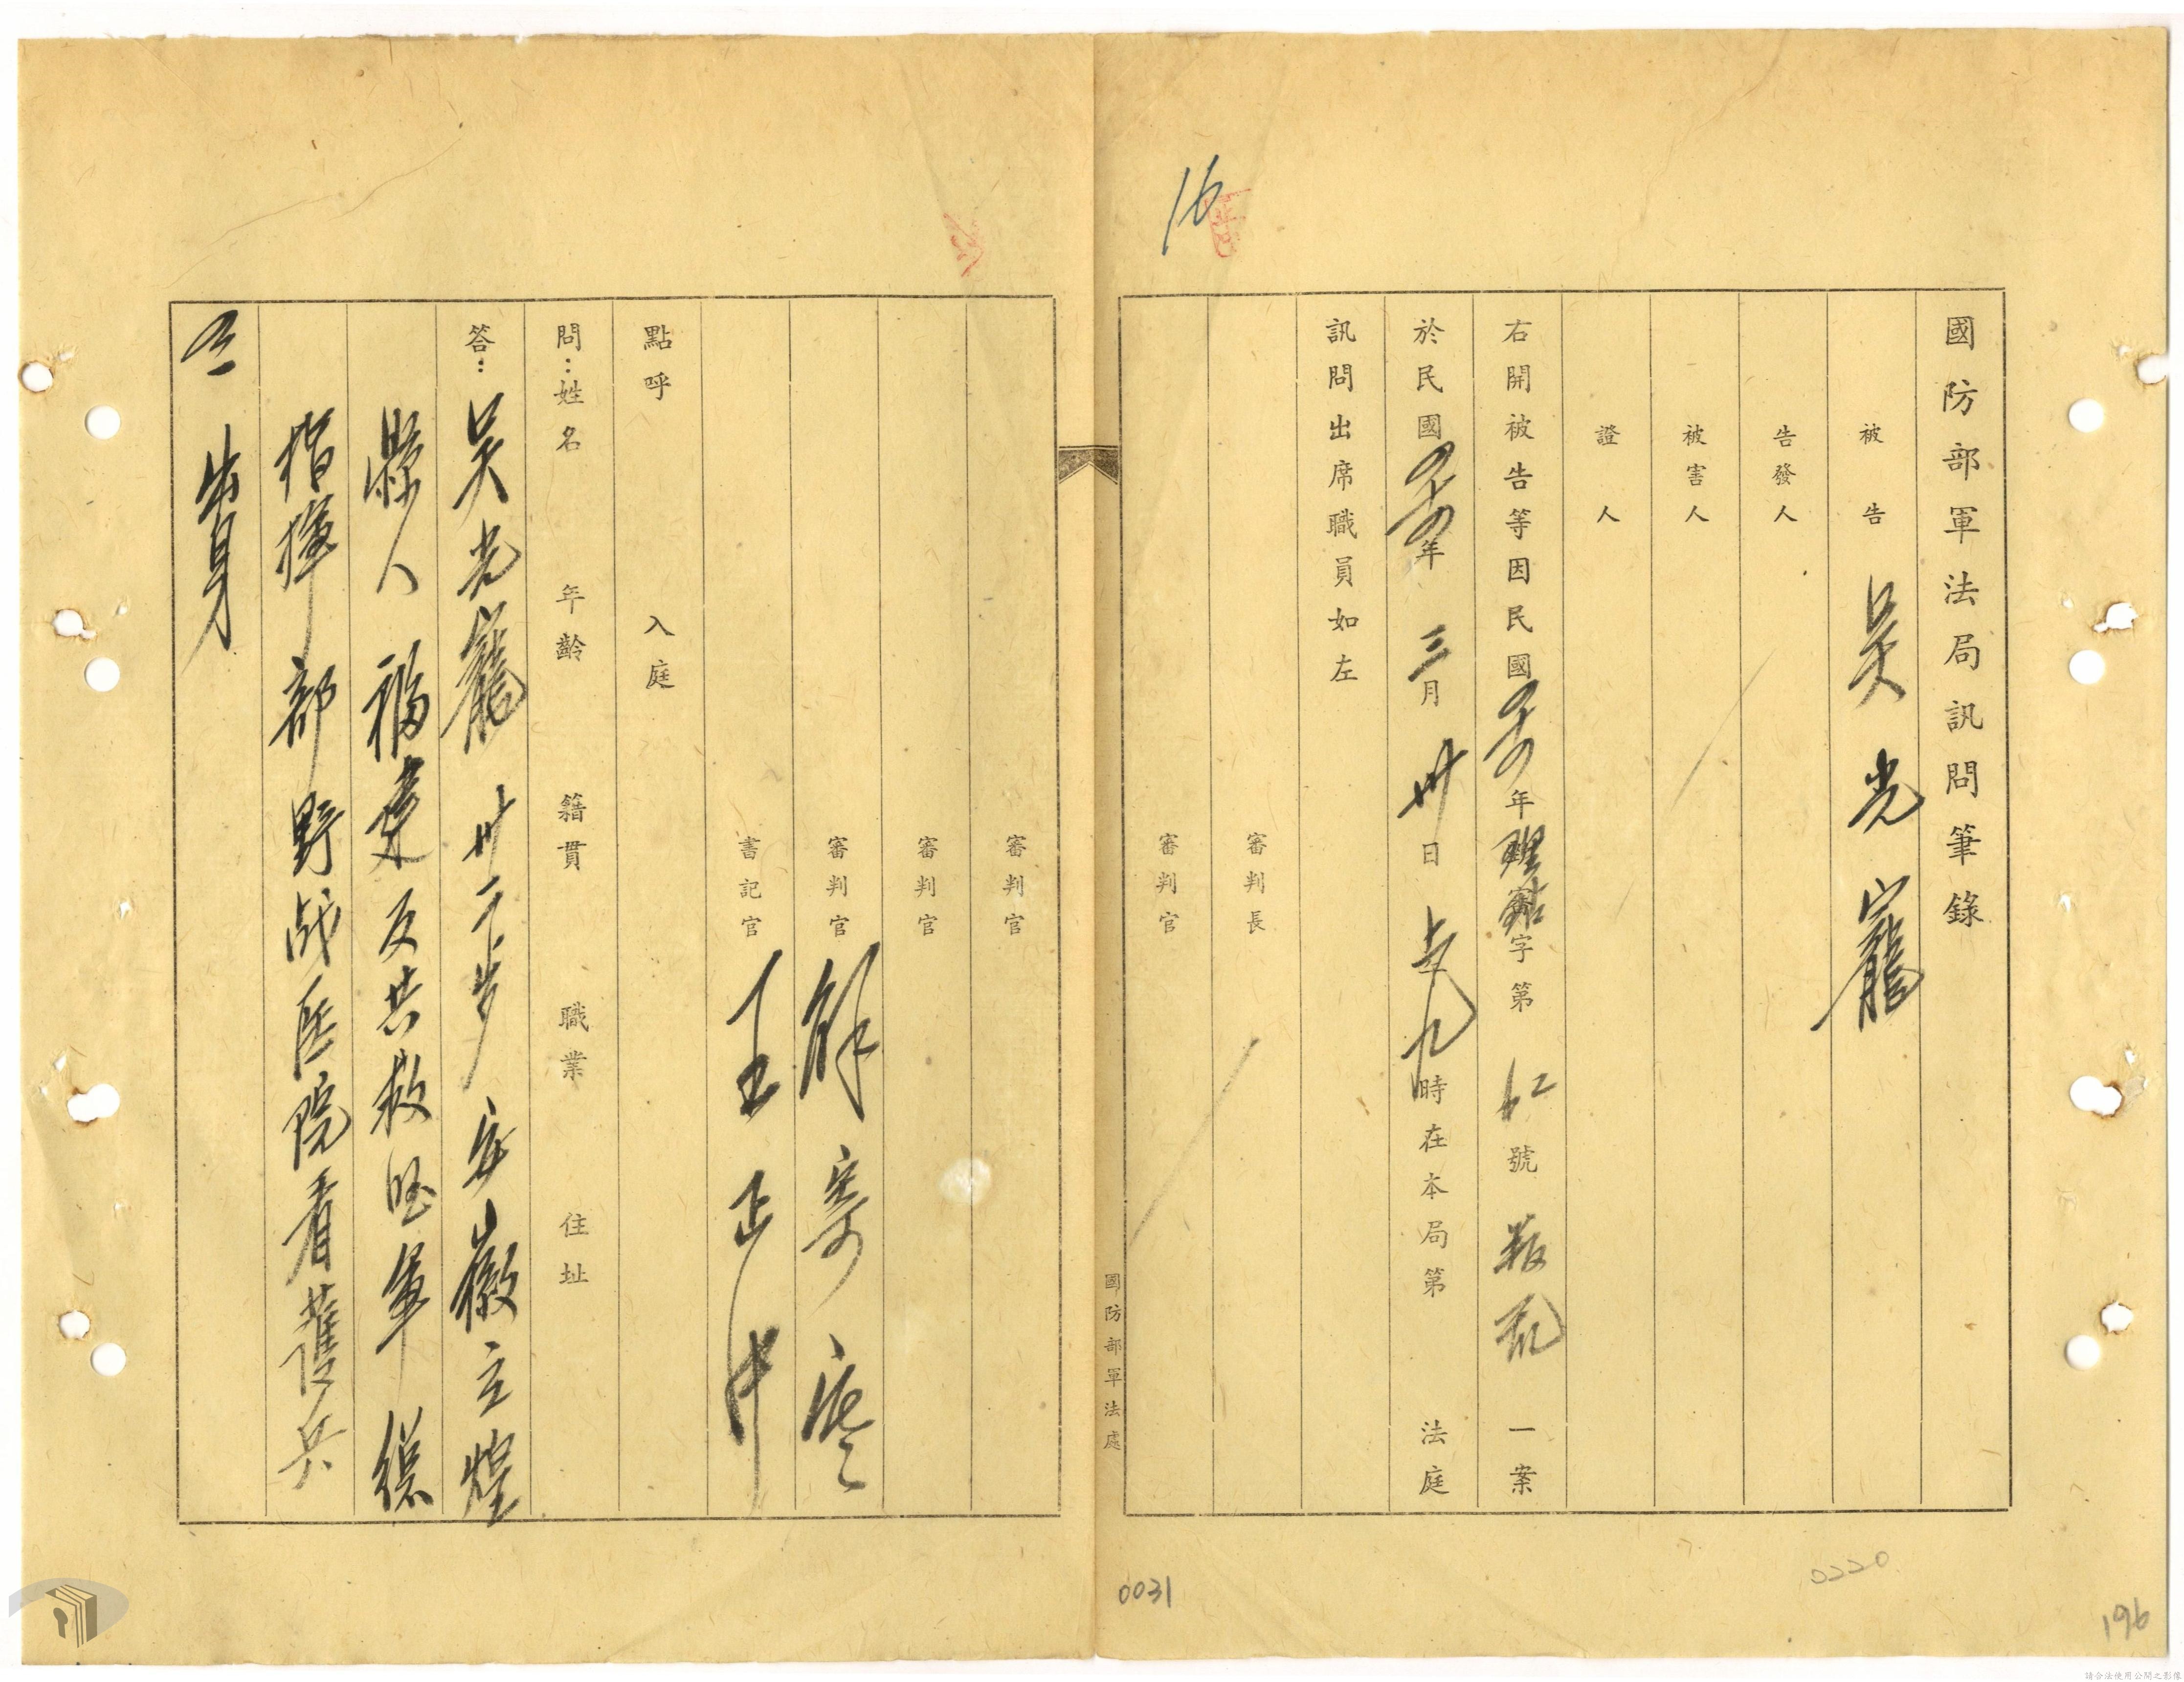 16
國防部軍法局訊問筆錄
被告 吳光寵
告發人
被害人
證人
右開被告等因民國年字第 62 號 叛亂 一案
於民國年 三月 卅日 上午九時在本局第 法庭
訊問出席職員如左
審判長
審判官
國防部軍法處
審判官
審判官
審判官
書記官 王正中
點呼 入庭
問:姓名 年齡 籍貫 職業 住址
答:吳光寵 卅二歲 安徽立煌
縣人 福建反共救国軍總
指揮部野战医院看護兵
出身
0031
0220
196
請合法使用公開之影像